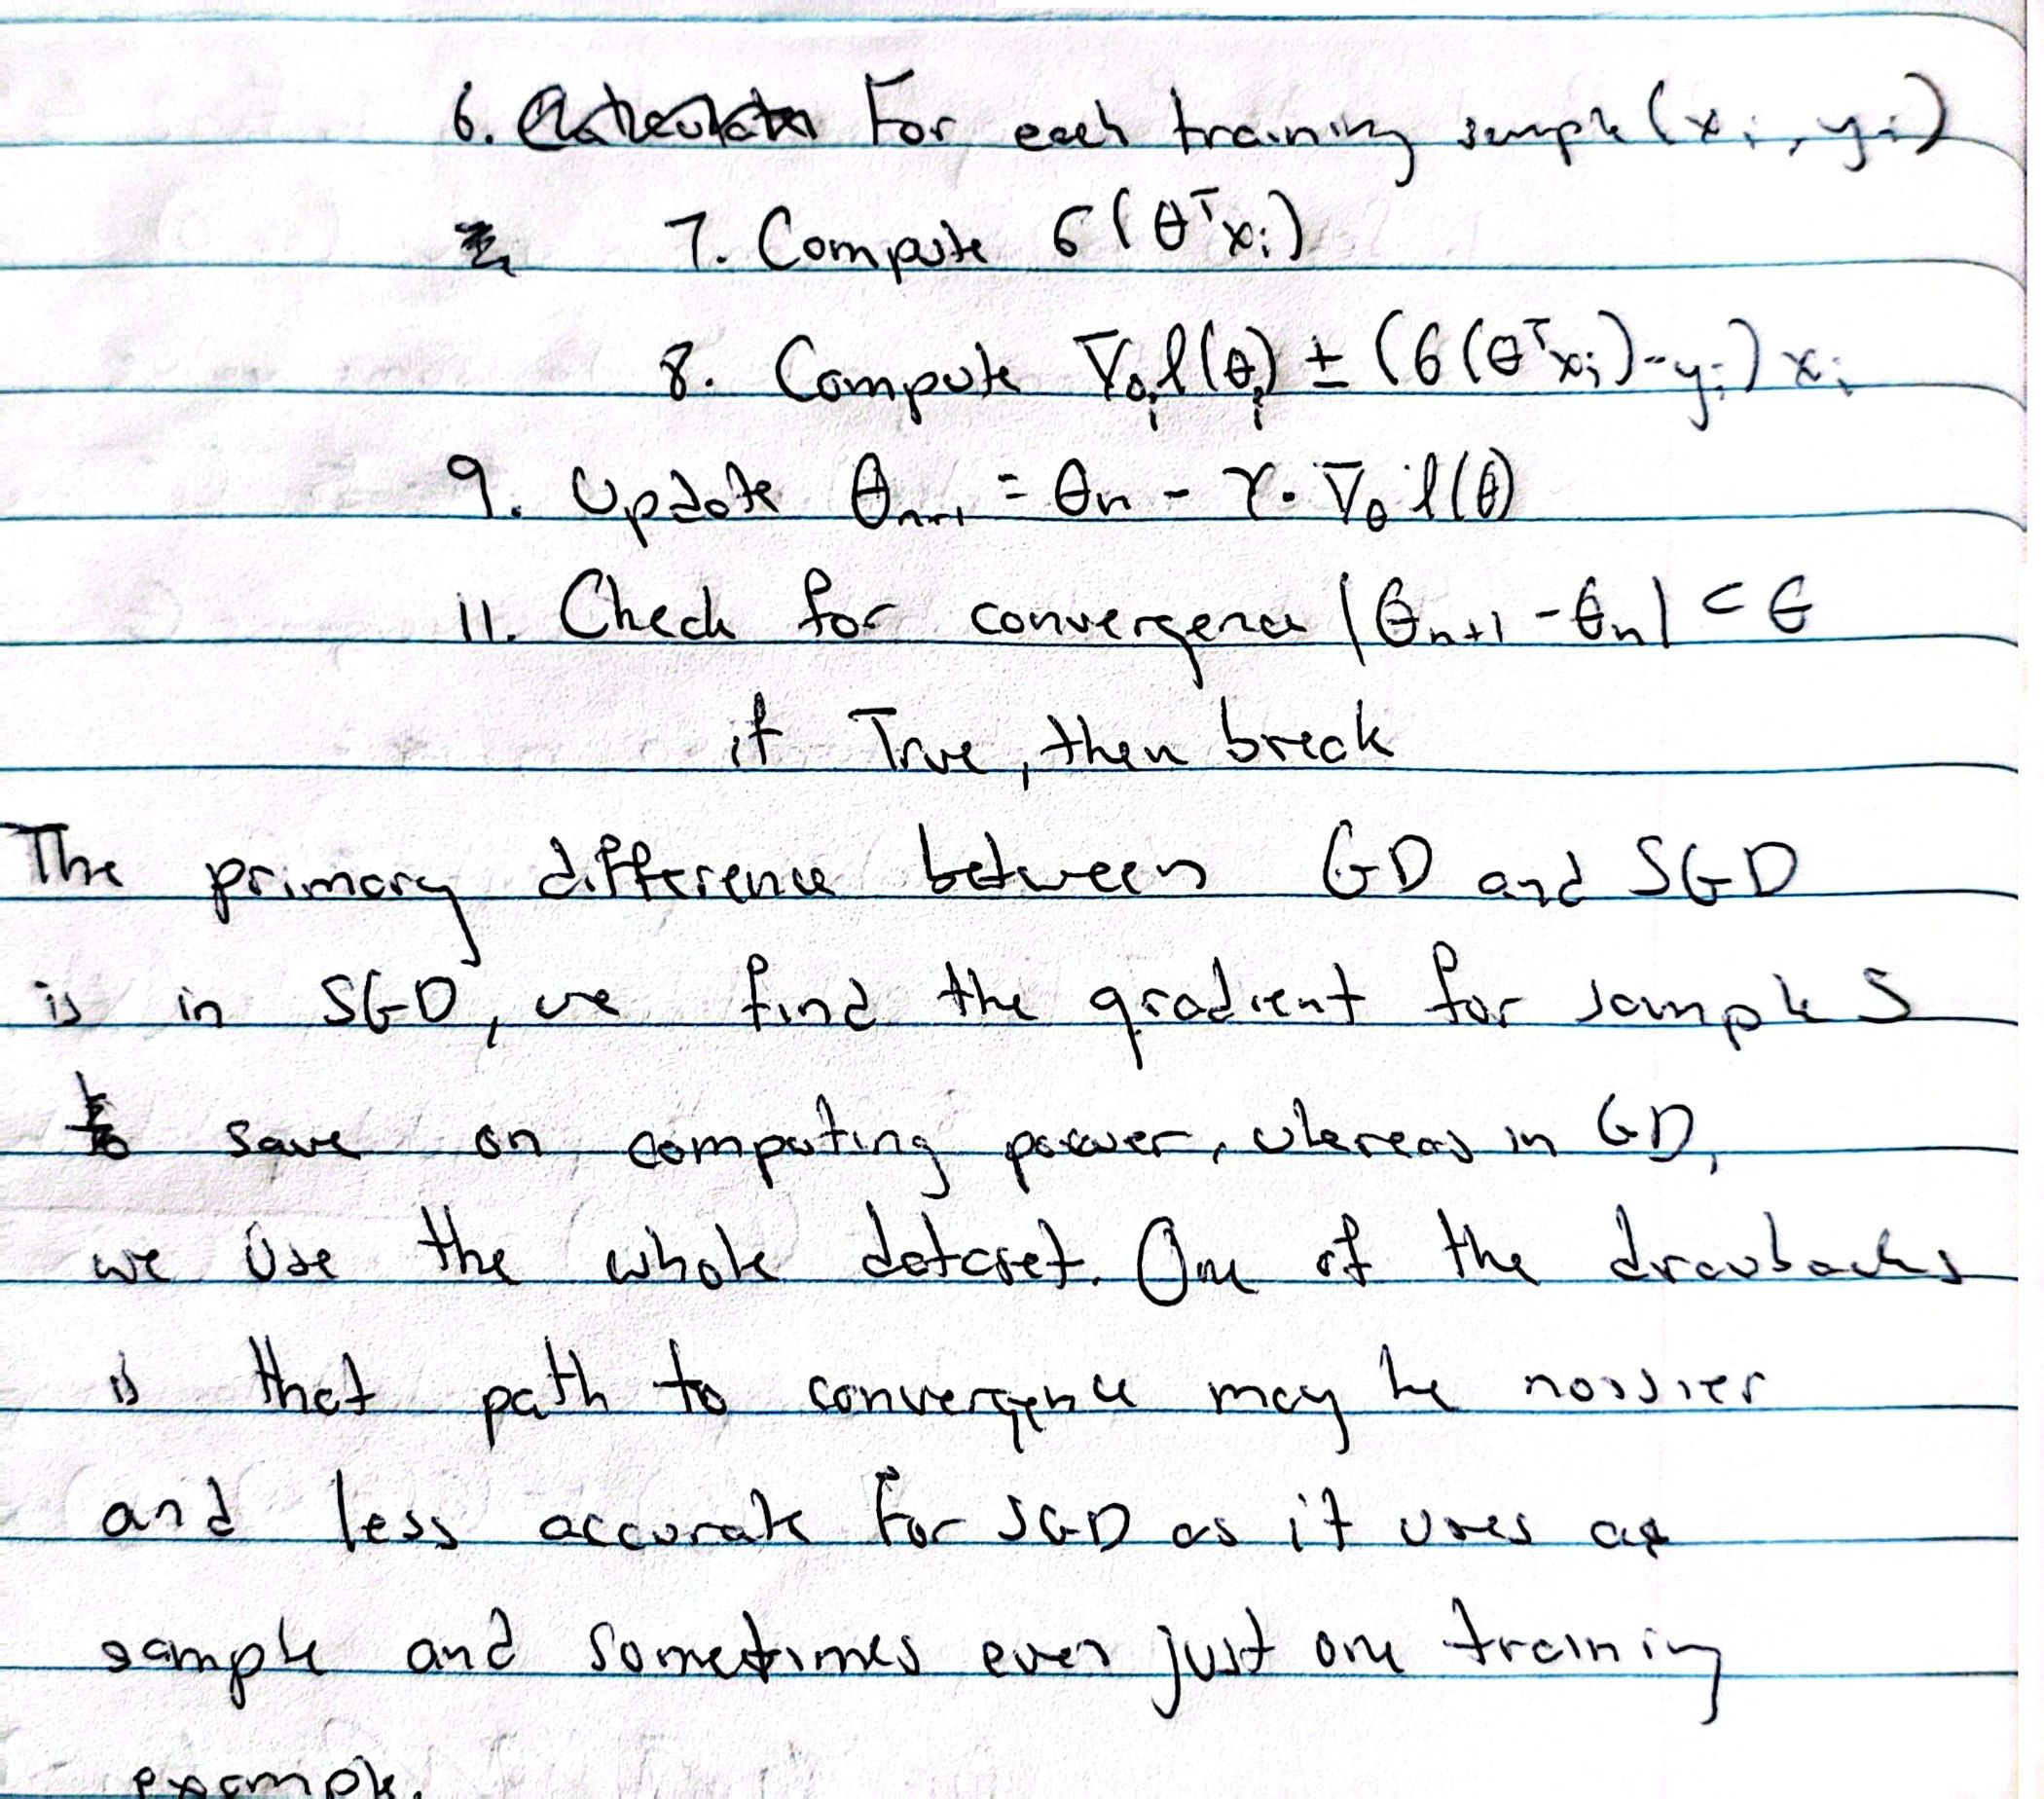 6. For each training sample (xi, yi)
7. Compute σ(θᵀxi)
8. Compute ∇θi l(θi) ± (σ(θᵀxi) - yi) xi
9. Update θn+1 = θn - γ. ∇θ l(θ)
11. Check for convergence |θn+1 - θn| < ϵ
if True, then break
The primary difference between GD and SGD
is in SGD, we find the gradient for samples
to save on computing power, whereas in GD,
we use the whole dataset. One of the drawbacks
is that path to convergence may be noissier
and less accurate for SGD as it uses a
sample and sometimes even just one training
example.